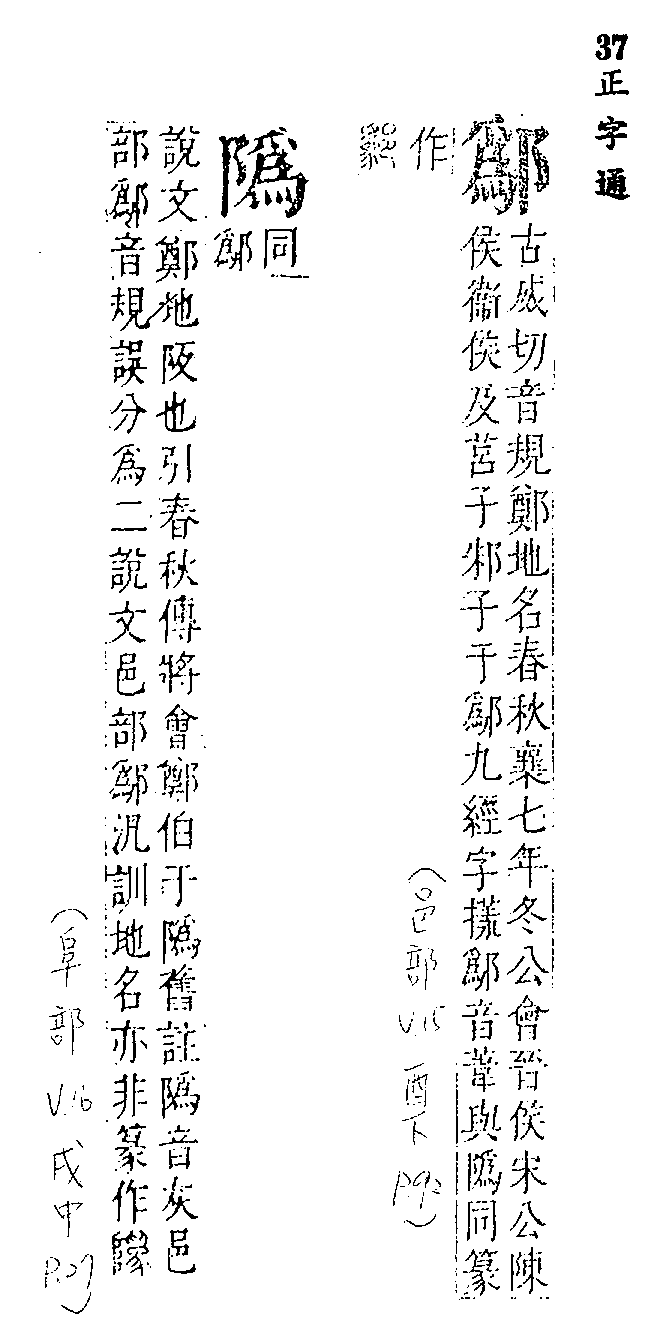 37正字通
鄬
古威切音規鄭地名春秋襄七年冬公會晉侯宋公陳
侯衞侯及莒子邾子于鄬九經字㨾鄬音葦與隝同篆
作
(邑部 V.15 酉下 P.92)
隝
同
鄬
說文鄭地阪也引春秋傳將會鄭伯于隝舊註隝音灰邑
部鄬音規誤分爲二說文邑部鄬汎訓地名亦非篆作
(阜部 V.16 戌中 P.27)